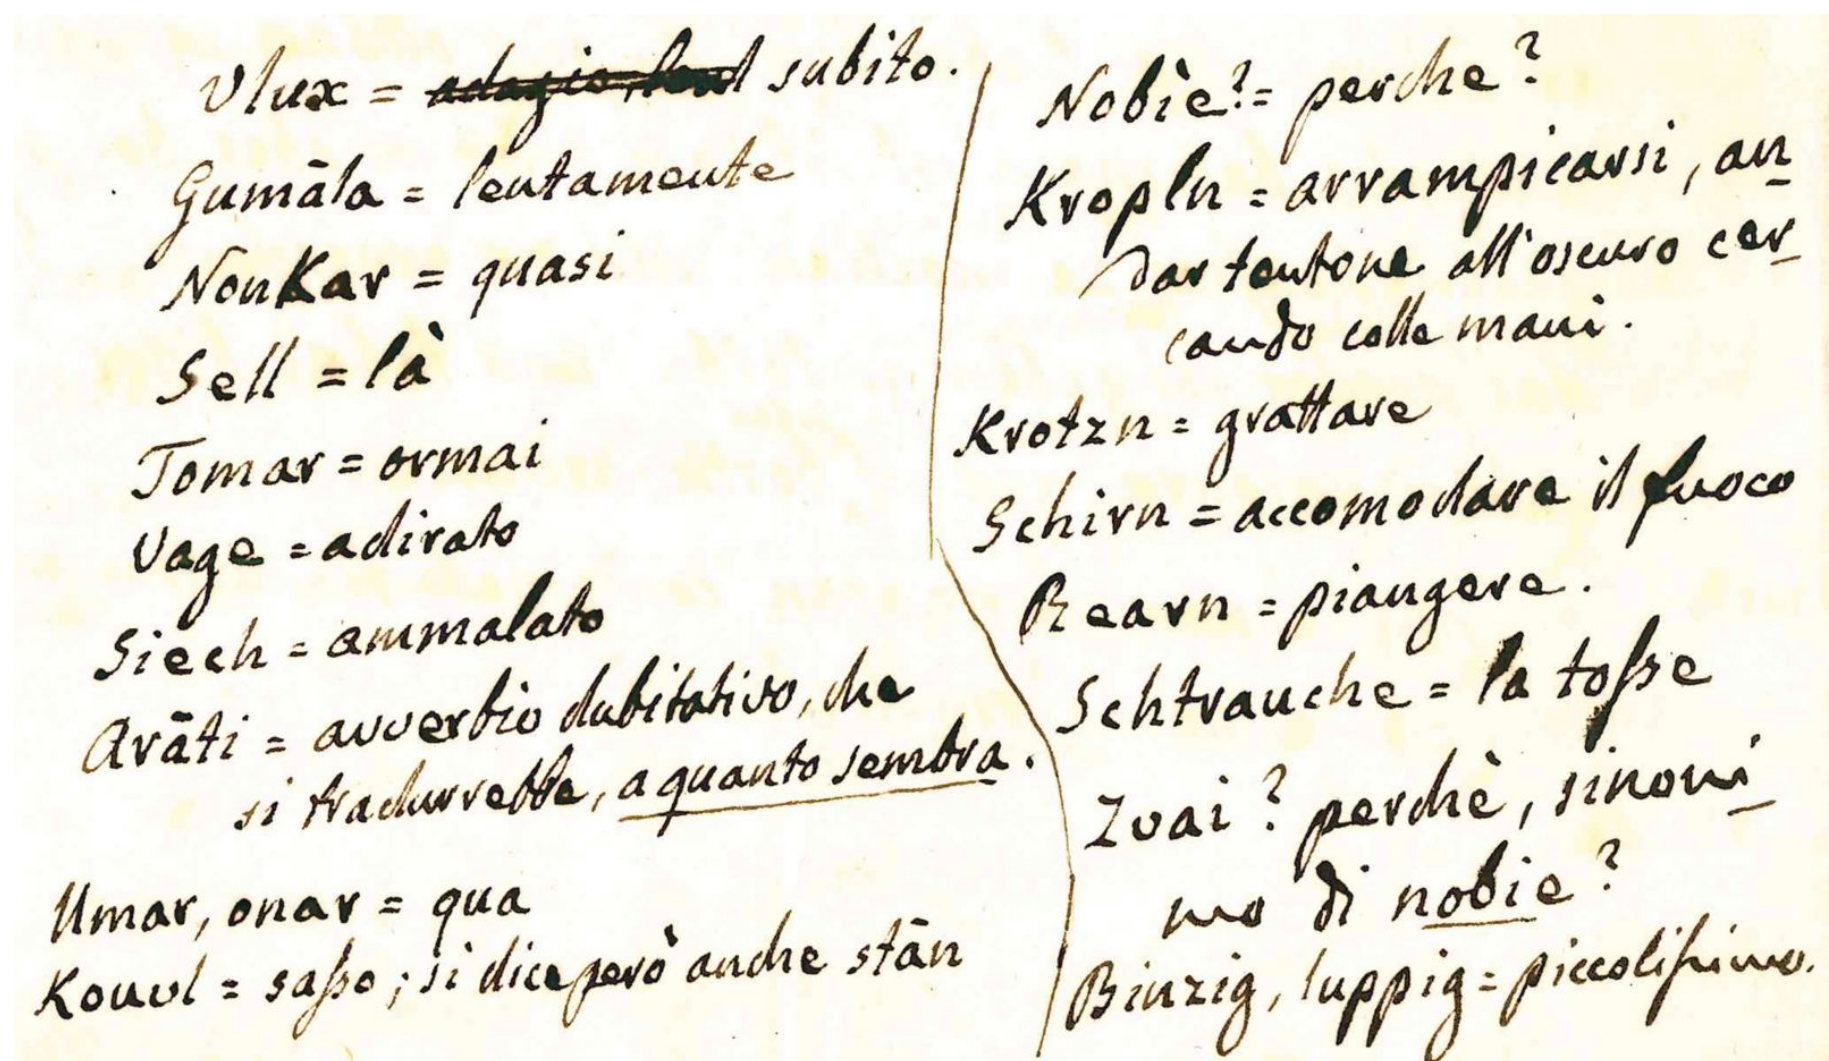 Vlux = adagio, lent subito.
Gumāla = lentamente
NonKar = quasi
Sell = là
Tomar = ormai
Vage = adirato
Siech = ammalato
Arāti = avverbio dubitativo, che
si tradurrebbe, a quanto sembra.
Umar, onar = qua
Kouvl = saſso; si dice però anche stān
Nobìe? = perche?
Kropln = arrampicarsi, an
dar tentone all'oscuro cer
cando colle mani.
Krotzn = grattare
Schirn = accomodare il fuoco
Rearn = piangere.
Schtrauche = la toſse
Zvai? perchè, sinoni
mo di nobie?
Binzig, luppig = piccoliſsimo.